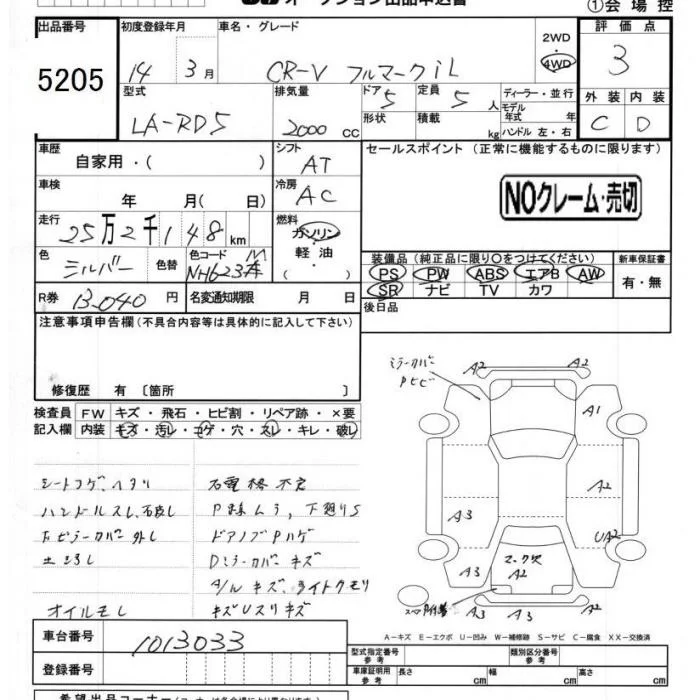 ①会 場 控
出品番号 初度登録年月 車名・グレード 評 価 点
5205
14 3月 CR-V フルマークiL
2WD
4WD
3
型式 排気量 ドア 定員 ディーラー・並行
外 装 内 装
LA-RD5 2000 cc 5 5 人
モデル年式 年
形状 積載 kg ハンドル 左・右
C D
車歴 自家用・( ) シフト AT
セールスポイント (正常に機能するものに限ります)
車検 年 月( 日) 冷房 AC
NOクレーム・売切
走行 25万2千148 km 燃料 ガソリン
軽 油
・( )
色 シルバー 色替 色コード NH623M
装備品(純正品に限り○をつけてください) 新車保証書
PS PW ABS エアB AW
SR ナビ TV カワ
有・無
R券 13.040 円 名変通知期限 月 日
後日品
注意事項申告欄(不具合内容等は具体的に記入して下さい)
修復歴 有 〔箇所 〕
検査員 FW キズ・飛石・ヒビ割・リペア跡・×要
記入欄 内装 キズ・汚レ・コゲ・穴・スレ・キレ・破レ
ミラーカバー
Pヒビ
A2 A2
A1
A2
A3
UA2
A3 A2 A3
A3 A3
シートコゲ、ヘタリ
ハンドルスレ、
オイルモレ
ドアノブPハゲ
Dミラーカバーキズ
A/Wキズ、ライトクモリ
A-キズ E-エクボ U-凹み W-補修跡 S-サビ C-腐食 XX-交換済
車台番号 1013033
登録番号
型式指定番号 参 考 類別区分番号 参 考
車庫証明用 参 考 長さ cm 幅 cm 高さ cm